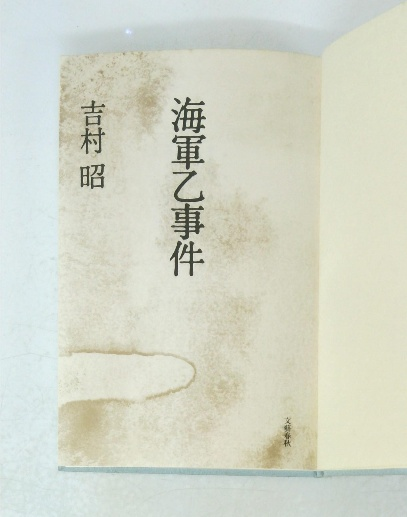 海軍乙事件
吉村昭
文藝春秋